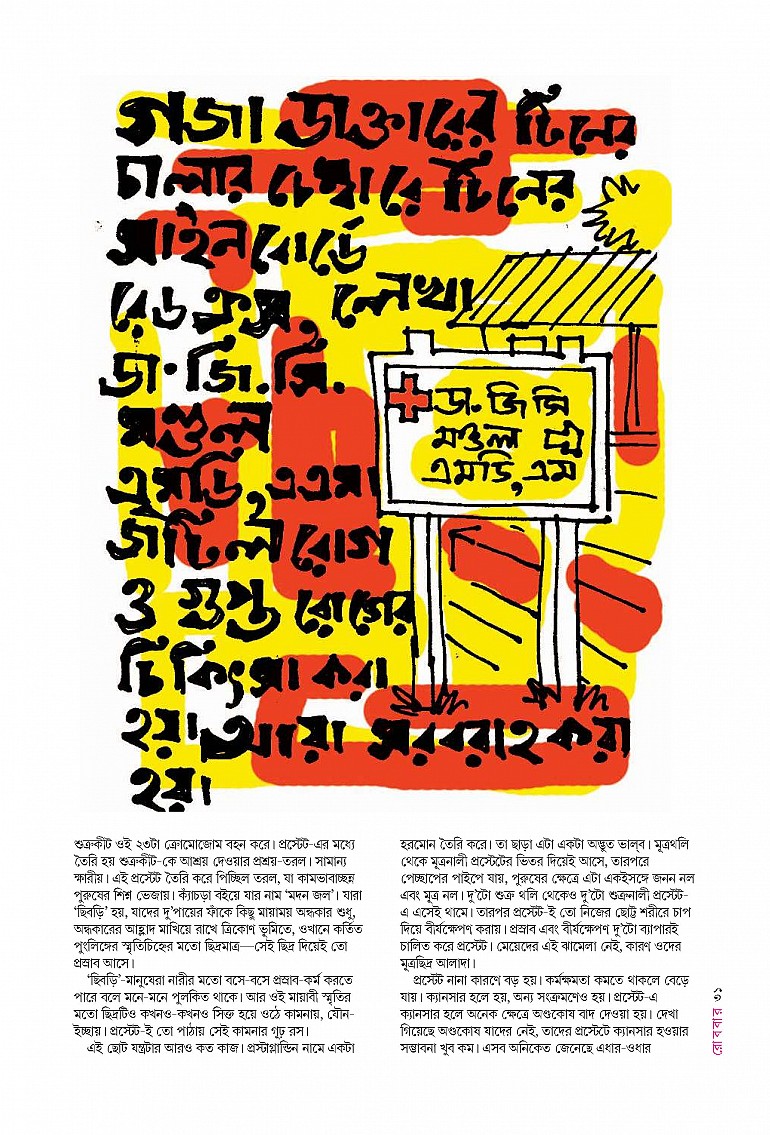 গজা ডাক্তারের টিনের
চালার চেম্বারে টিনের
সাইনবোর্ডে
রেড ক্রস, লেখা
ডা. জি. সি.
মণ্ডল
এমডি, এএমা
জটিল রোগ
ও গুপ্ত রোগের
চিকিৎসা করা
হয়। আয়া সরবরাহ করা
হয়।
ডা. জি সি
মণ্ডল
এমডি, এম
শুক্রকীট ওই ২৩টা ক্রোমোজোম বহন করে। প্রস্টেট-এর মধ্যে
তৈরি হয় শুক্রকীট-কে আশ্রয় দেওয়ার প্রশ্রয়-তরল। সামান্য
ক্ষারীয়। এই প্রস্টেট তৈরি করে পিচ্ছিল তরল, যা কামভাবাচ্ছন্ন
পুরুষের শিশ্ন ভেজায়। ক্যাঁচড়া বইয়ে যার নাম ‘মদন জল’। যারা
‘ছিবড়ি’ হয়, যাদের দু’পায়ের ফাঁকে কিছু মায়াময় অন্ধকার শুধু,
অন্ধকারের আহ্লাদ মাখিয়ে রাখে ত্রিকোণ ভূমিতে, ওখানে কর্তিত
পুংলিঙ্গের স্মৃতিচিহ্নের মতো ছিদ্রমাত্র—সেই ছিদ্র দিয়েই তো
প্রস্রাব আসে।
‘ছিবড়ি’-মানুষেরা নারীর মতো বসে-বসে প্রস্রাব-কর্ম করতে
পারে বলে মনে-মনে পুলকিত থাকে। আর ওই মায়াবী স্মৃতির
মতো ছিদ্রটিও কখনও-কখনও সিক্ত হয়ে ওঠে কামনায়, যৌন-
ইচ্ছায়। প্রস্টেট-ই তো পাঠায় সেই কামনার গূঢ় রস।
এই ছোট যন্ত্রটার আরও কত কাজ। প্রস্টাগ্লান্ডিন নামে একটা
হরমোন তৈরি করে। তা ছাড়া এটা একটা অদ্ভুত ভাল্‌ব। মূত্রথলি
থেকে মূত্রনালী প্রস্টেটের ভিতর দিয়েই আসে, তারপরে
পেচ্ছাপের পাইপে যায়, পুরুষের ক্ষেত্রে এটা একইসঙ্গে জনন নল
এবং মূত্র নল। দু’টো শুক্র থলি থেকেও দু’টো শুক্রনালী প্রস্টেট-
এ এসেই থামে। তারপর প্রস্টেট-ই তো নিজের ছোট্ট শরীরে চাপ
দিয়ে বীর্যক্ষেপণ করায়। প্রস্রাব এবং বীর্যক্ষেপণ দু’টো ব্যাপারই
চালিত করে প্রস্টেট। মেয়েদের এই ঝামেলা নেই, কারণ ওদের
মূত্রছিদ্র আলাদা।
প্রস্টেট নানা কারণে বড় হয়। কর্মক্ষমতা কমতে থাকলে বেড়ে
যায়। ক্যানসার হলে হয়, অন্য সংক্রমণেও হয়। প্রস্টেট-এ
ক্যানসার হলে অনেক ক্ষেত্রে অণ্ডকোষ বাদ দেওয়া হয়। দেখা
গিয়েছে অণ্ডকোষ যাদের নেই, তাদের প্রস্টেটে ক্যানসার হওয়ার
সম্ভাবনা খুব কম। এসব অনিকেত জেনেছে এধার-ওধার
রোববার ৩১